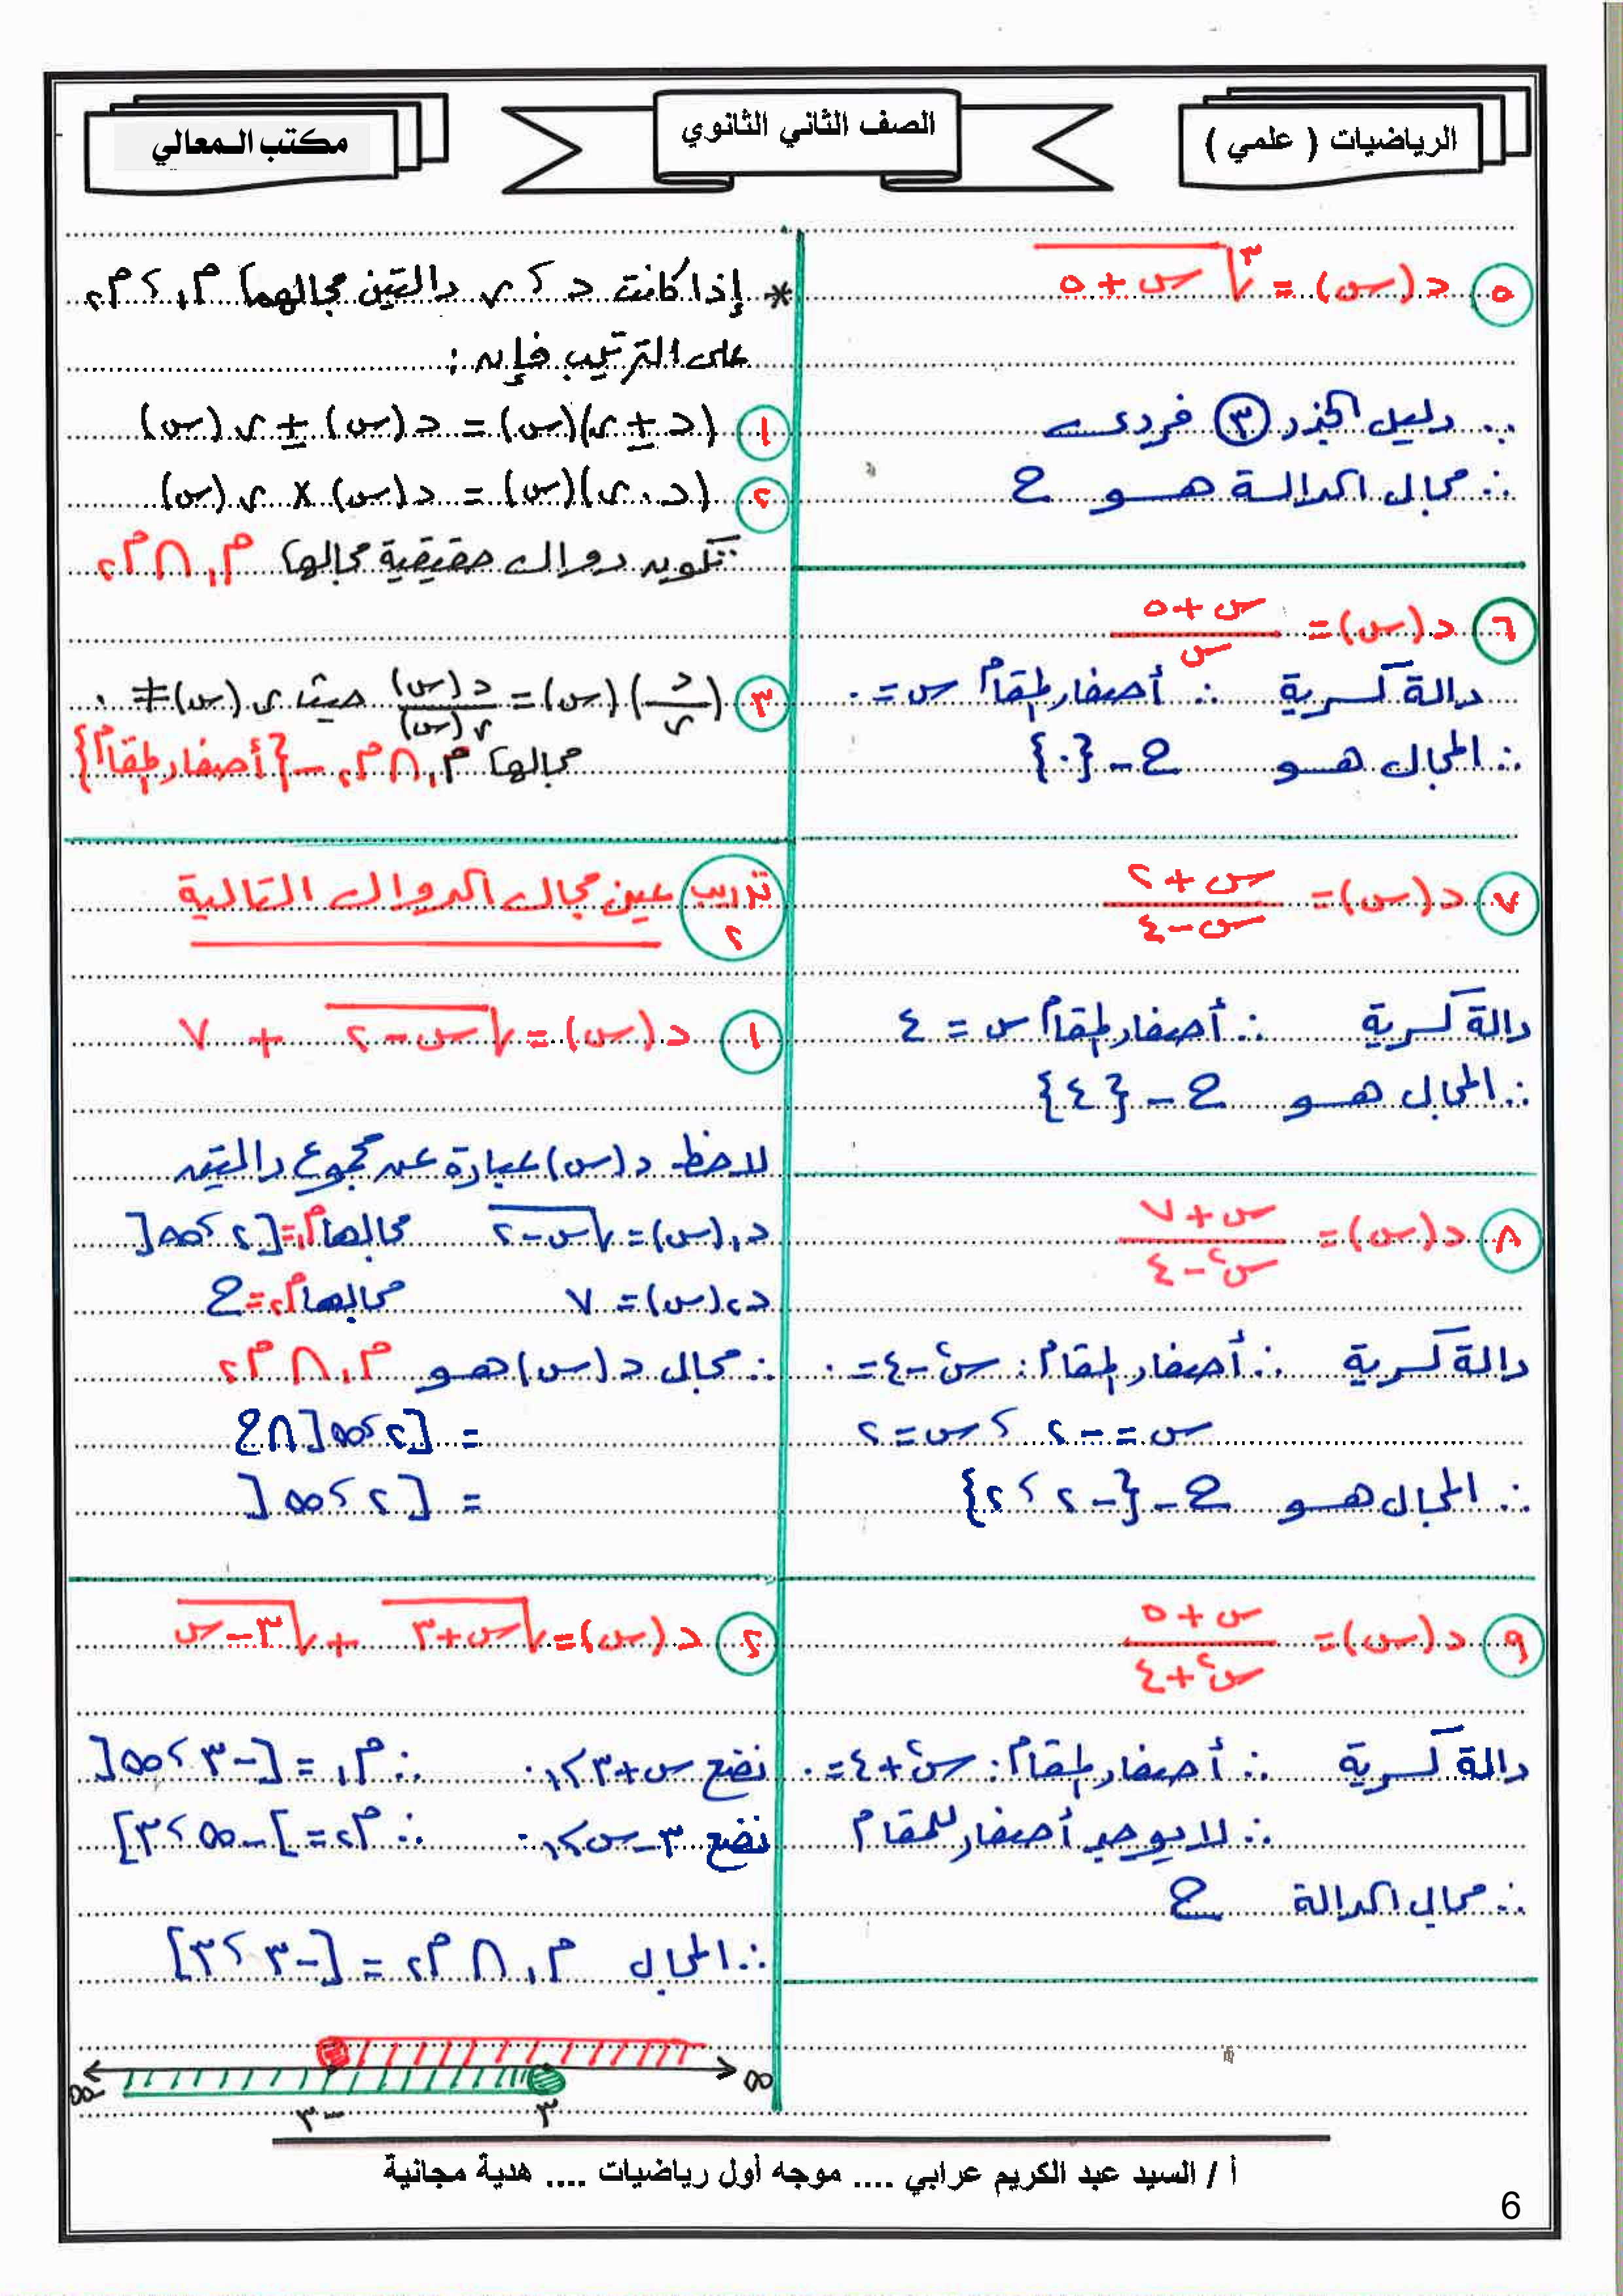 الرياضيات ( علمي )
الصف الثاني الثانوي
مكتب المعالي
٥ د(س) = ٣√س+٥
∵ دليل الجذر ٣ فردي
∴ مجال الدالة هو ح
٦ د(س) = س+٥ / س
دالة كسرية ∴ أصفار المقام س = ٠
∴ المجال هو ح - {٠}
٧ د(س) = س+٢ / س-٤
دالة كسرية ∴ أصفار المقام س = ٤
∴ المجال هو ح - {٤}
٨ د(س) = س+٧ / س٢-٤
دالة كسرية ∴ أصفار المقام : س٢-٤ = ٠
س = -٢ ، س = ٢
∴ المجال هو ح - {-٢ ، ٢}
٩ د(س) = س+٥ / س٢+٤
دالة كسرية ∴ أصفار المقام : س٢+٤ = ٠
∴ لا يوجد أصفار للمقام
∴ مجال الدالة ح
* إذا كانت د ، ر دالتين مجالهما م١ ، م٢
على الترتيب فإن :
١ (د ± ر)(س) = د(س) ± ر(س)
٢ (د . ر)(س) = د(س) × ر(س)
تكون دوال حقيقية مجالها م١ ∩ م٢
٣ (د/ر)(س) = د(س)/ر(س) حيث ر(س) ≠ ٠
مجالها م١ ∩ م٢ - {أصفار المقام}
تدريب ٢ عين مجال الدوال التالية
١ د(س) = √س-٢ + ٧
لاحظ د(س) عبارة عن مجموع دالتين
د١(س) = √س-٢ مجالها م١ = [٢ ، ∞[
د٢(س) = ٧ مجالها م٢ = ح
∴ مجال د(س) هو م١ ∩ م٢
= [٢ ، ∞[ ∩ ح
= [٢ ، ∞[
٢ د(س) = √س+٣ + √٣-س
نضع س+٣ ≥ ٠ ∴ م١ = [-٣ ، ∞[
نضع ٣-س ≥ ٠ ∴ م٢ = ]-∞ ، ٣]
∴ المجال م١ ∩ م٢ = [-٣ ، ٣]
-∞ ∞
-٣ ٣
أ / السيد عبد الكريم عرابي .... موجه أول رياضيات .... هدية مجانية
6